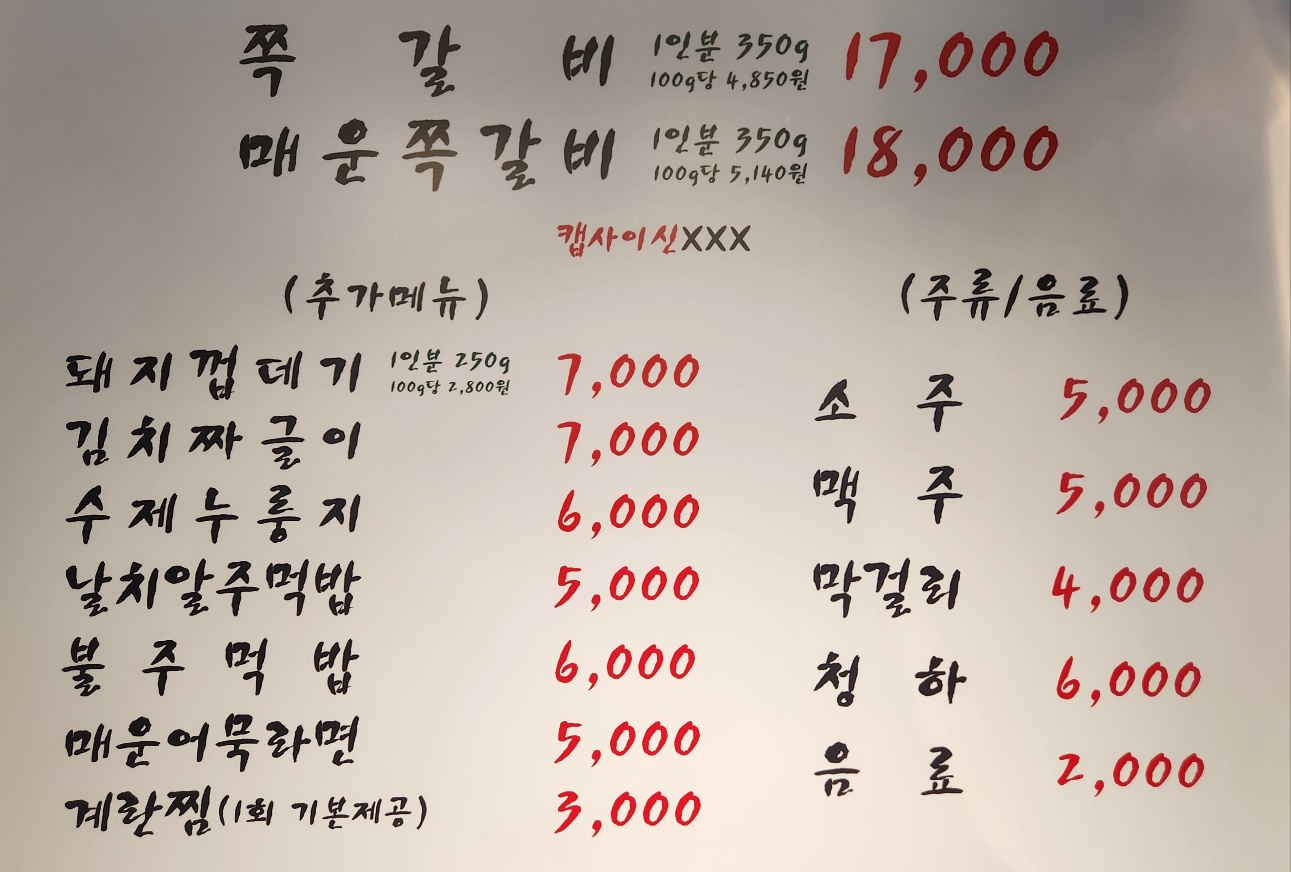 쪽갈비 1인분 350g 100g당 4,850원 17,000
매운쪽갈비 1인분 350g 100g당 5,140원 18,000
캡사이신XXX
(추가메뉴)
돼지껍데기 1인분 250g 100g당 2,800원 7,000
김치짜글이 7,000
수제누룽지 6,000
날치알주먹밥 5,000
불주먹밥 6,000
매운어묵라면 5,000
계란찜(1회 기본제공) 3,000
(주류/음료)
소주 5,000
맥주 5,000
막걸리 4,000
청하 6,000
음료 2,000